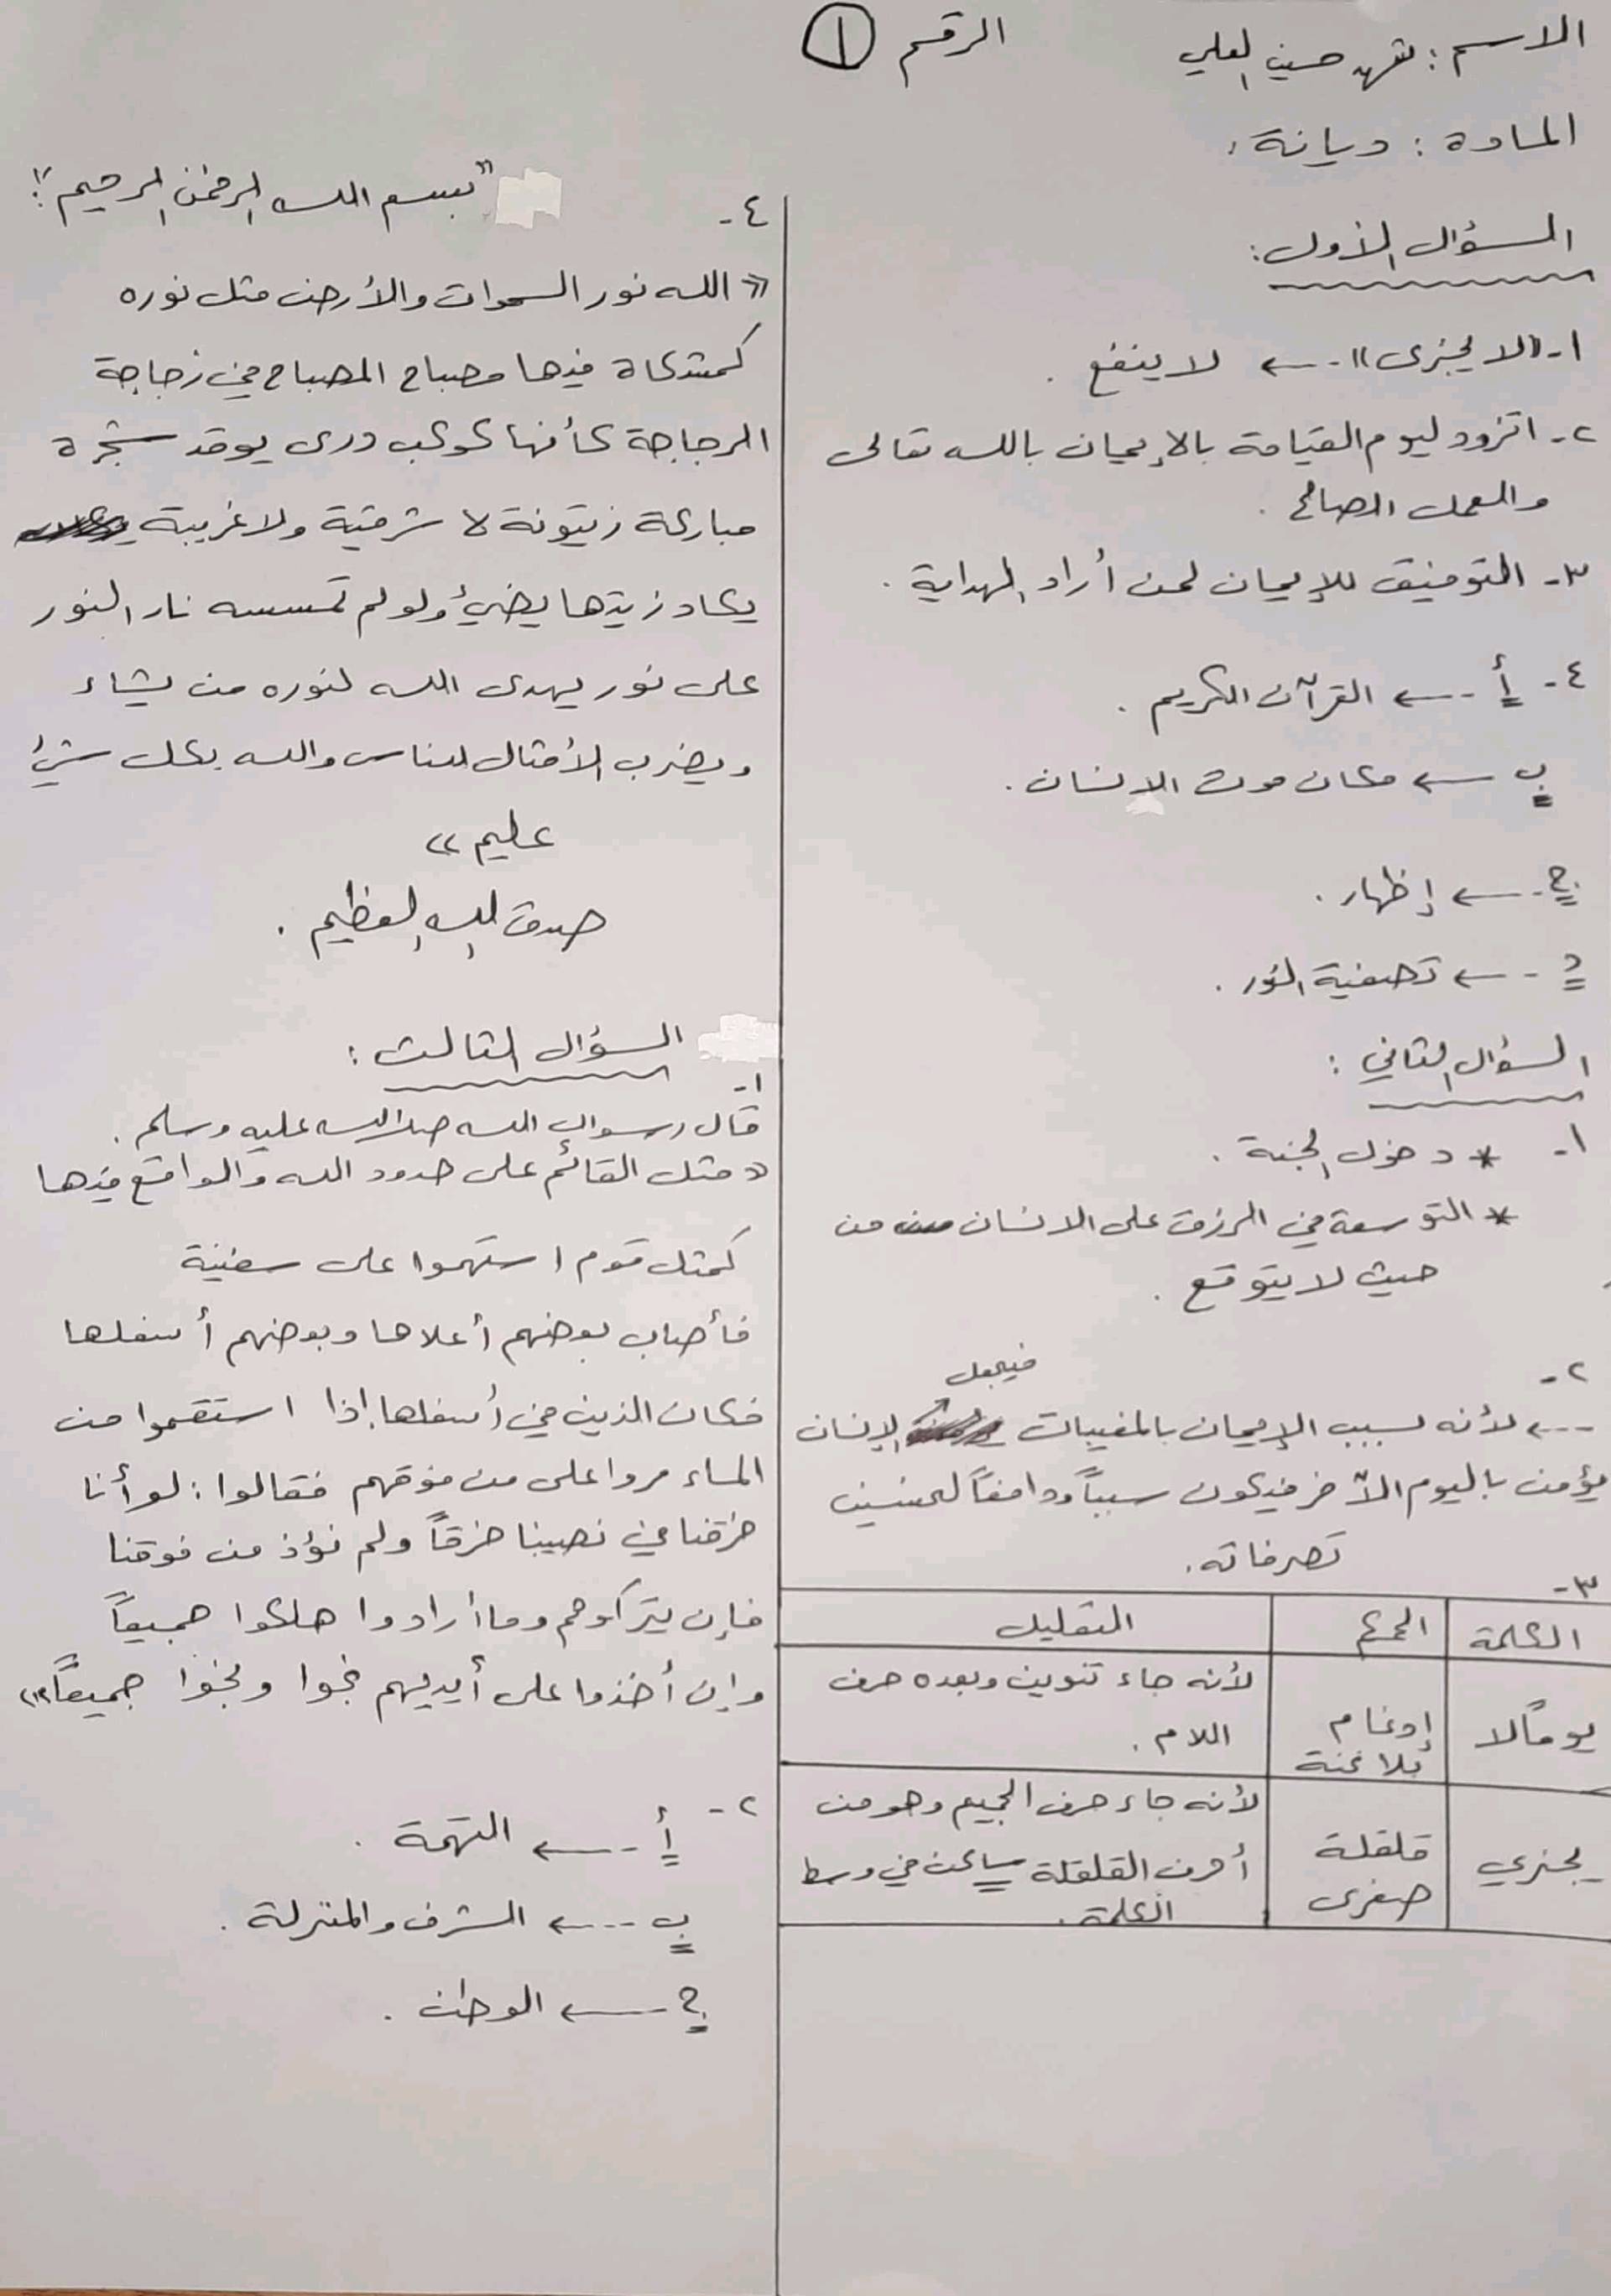 الاسم : شهد حسين العلي
الرقم ١
المادة : ديانة :
السؤال الأول :
١- ((لا يجزى)) --> لا ينفع .
٢- اتزود ليوم القيامة بالإيمان بالله تعالى
والعمل الصالح .
٣- التوفيق للإيمان لمن أراد الهداية .
٤- أ --> القرآن الكريم .
ب --> مكان موت الانسان .
ج --> إظهار .
د --> تصفية النور .
السؤال الثاني :
١- * دخول الجنة .
* التوسعة في الرزق على الانسان من من
حيث لا يتوقع .
٢-
فيجعل
--> لأنه لسبب الإيمان بالمغيبات الإنسان
يؤمن باليوم الآخر فيكون سبباً ودافعاً لتحسين
تصرفاته .
٣-
الكلمة | الحكم | التعليل
يوماً لا | إدغام بلا غنة | لأنه جاء تنوين وبعده حرف
اللام .
يجزي | قلقلة صغرى | لأنه جاء حرف الجيم وهو من
أحرف القلقلة ساكن في وسط
الكلمة .
٤- "بسم الله الرحمن الرحيم":
« الله نور السموات والأرض مثل نوره
كمشكاة فيها مصباح المصباح في زجاجة
الزجاجة كأنها كوكب درى يوقد شجرة
مباركة زيتونة لا شرقية ولا غربية
يكاد زيتها يضيئ ولو لم تمسسه نار النور
على نور يهدى الله لنوره من يشاء
ويضرب الأمثال للناس والله بكل شيئ
عليم »
صدق الله العظيم .
السؤال الثالث :
١-
قال رسول الله صلى الله عليه وسلم .
« مثل القائم على حدود الله والواقع فيها
كمثل قوم استهموا على سفينة
فأصاب بعضهم أعلاها وبعضهم أسفلها
فكان الذين في أسفلها إذا استقموا من
الماء مروا على من فوقهم فقالوا : لو أنا
خرقنا في نصيبنا خرقاً ولم نؤذ من فوقنا
فإن يتركوهم وما أرادوا هلكوا جميعاً
وإن أخذوا على أيديهم نجوا ونجوا جميعاً»
٢- أ --> التهمة .
ب --> الشرف والمنزلة .
ج --> الوطن .